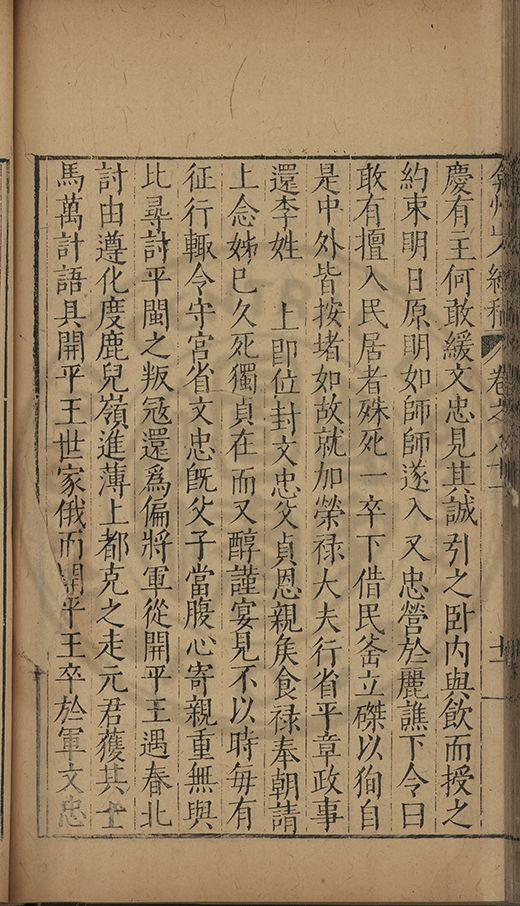 弇州山人續稿 卷之八十一 十二
慶有二王何敢緩文忠見其誠引之卧內與飲而授之
約束明日原明如師師遂入又忠營於麗譙下令曰
敢有擅入民居者殊死一卒下借民釜立磔以狥自
是中外皆按堵如故就加榮祿大夫行省平章政事
還李姓 上即位封文忠父貞恩親矦食祿奉朝請
上念姊巳久死獨貞在而又醇謹宴見不以時每有
征行輙令守宮省文忠旣父子當腹心寄親重無與
比尋討平閩之叛冦還爲偏將軍從開平王遇春北
討由遵化度鹿兒嶺進薄上都克之走元君獲其士
馬萬計語具開平王世家俄而開平王卒於軍文忠